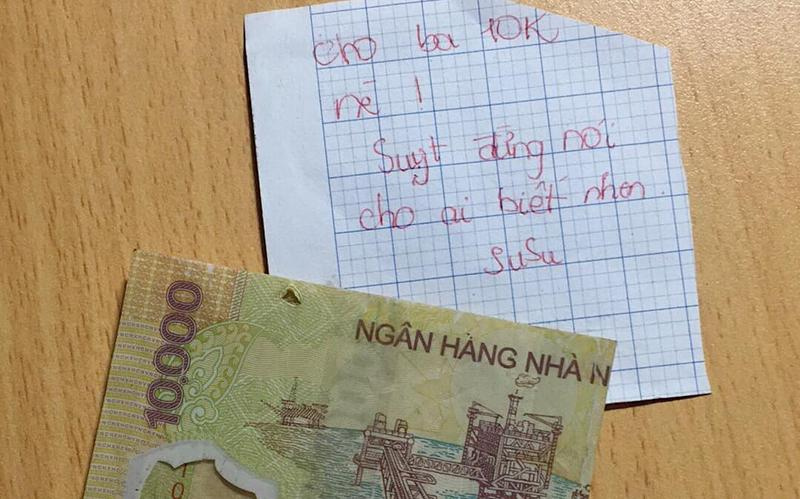 cho ba 10K
nè !
Suỵt đừng nói
cho ai biết nhen.
SuSu
NGÂN HÀNG NHÀ N
10.000